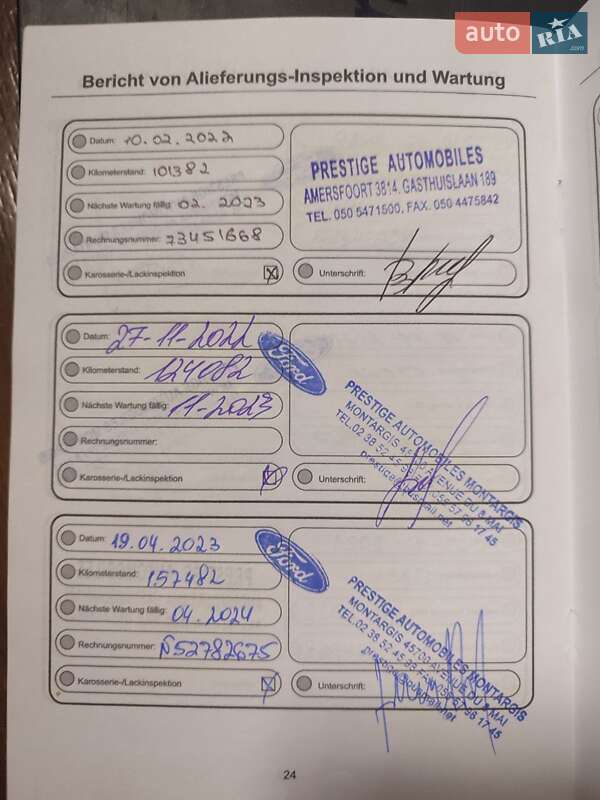 auto RIA.com
Bericht von Alieferungs-Inspektion und Wartung
Datum: 10.02.2022
Kilometerstand: 101382
Nächste Wartung fällig: 02.2023
Rechnungsnummer: 73451668
Karosserie-/Lackinspektion
PRESTIGE AUTOMOBILES
AMERSFOORT 3814, GASTHUISLAAN 189
TEL. 050 5471500, FAX. 050 4475842
Unterschrift:
Datum: 27-11-2022
Kilometerstand: 124082
Nächste Wartung fällig: 11-2023
Rechnungsnummer:
Karosserie-/Lackinspektion
Ford
PRESTIGE AUTOMOBILES MONTARGIS
MONTARGIS 45700 AVENUE DU 8 MAI
TEL.02 38 52 45 96 17 45
Unterschrift:
Datum: 19.04.2023
Kilometerstand: 157482
Nächste Wartung fällig: 04.2024
Rechnungsnummer: N52782675
Karosserie-/Lackinspektion
Ford
PRESTIGE AUTOMOBILES MONTARGIS
MONTARGIS 45700 AVENUE DU 8 MAI
TEL.02 38 52 45 96 17 45
Unterschrift:
24